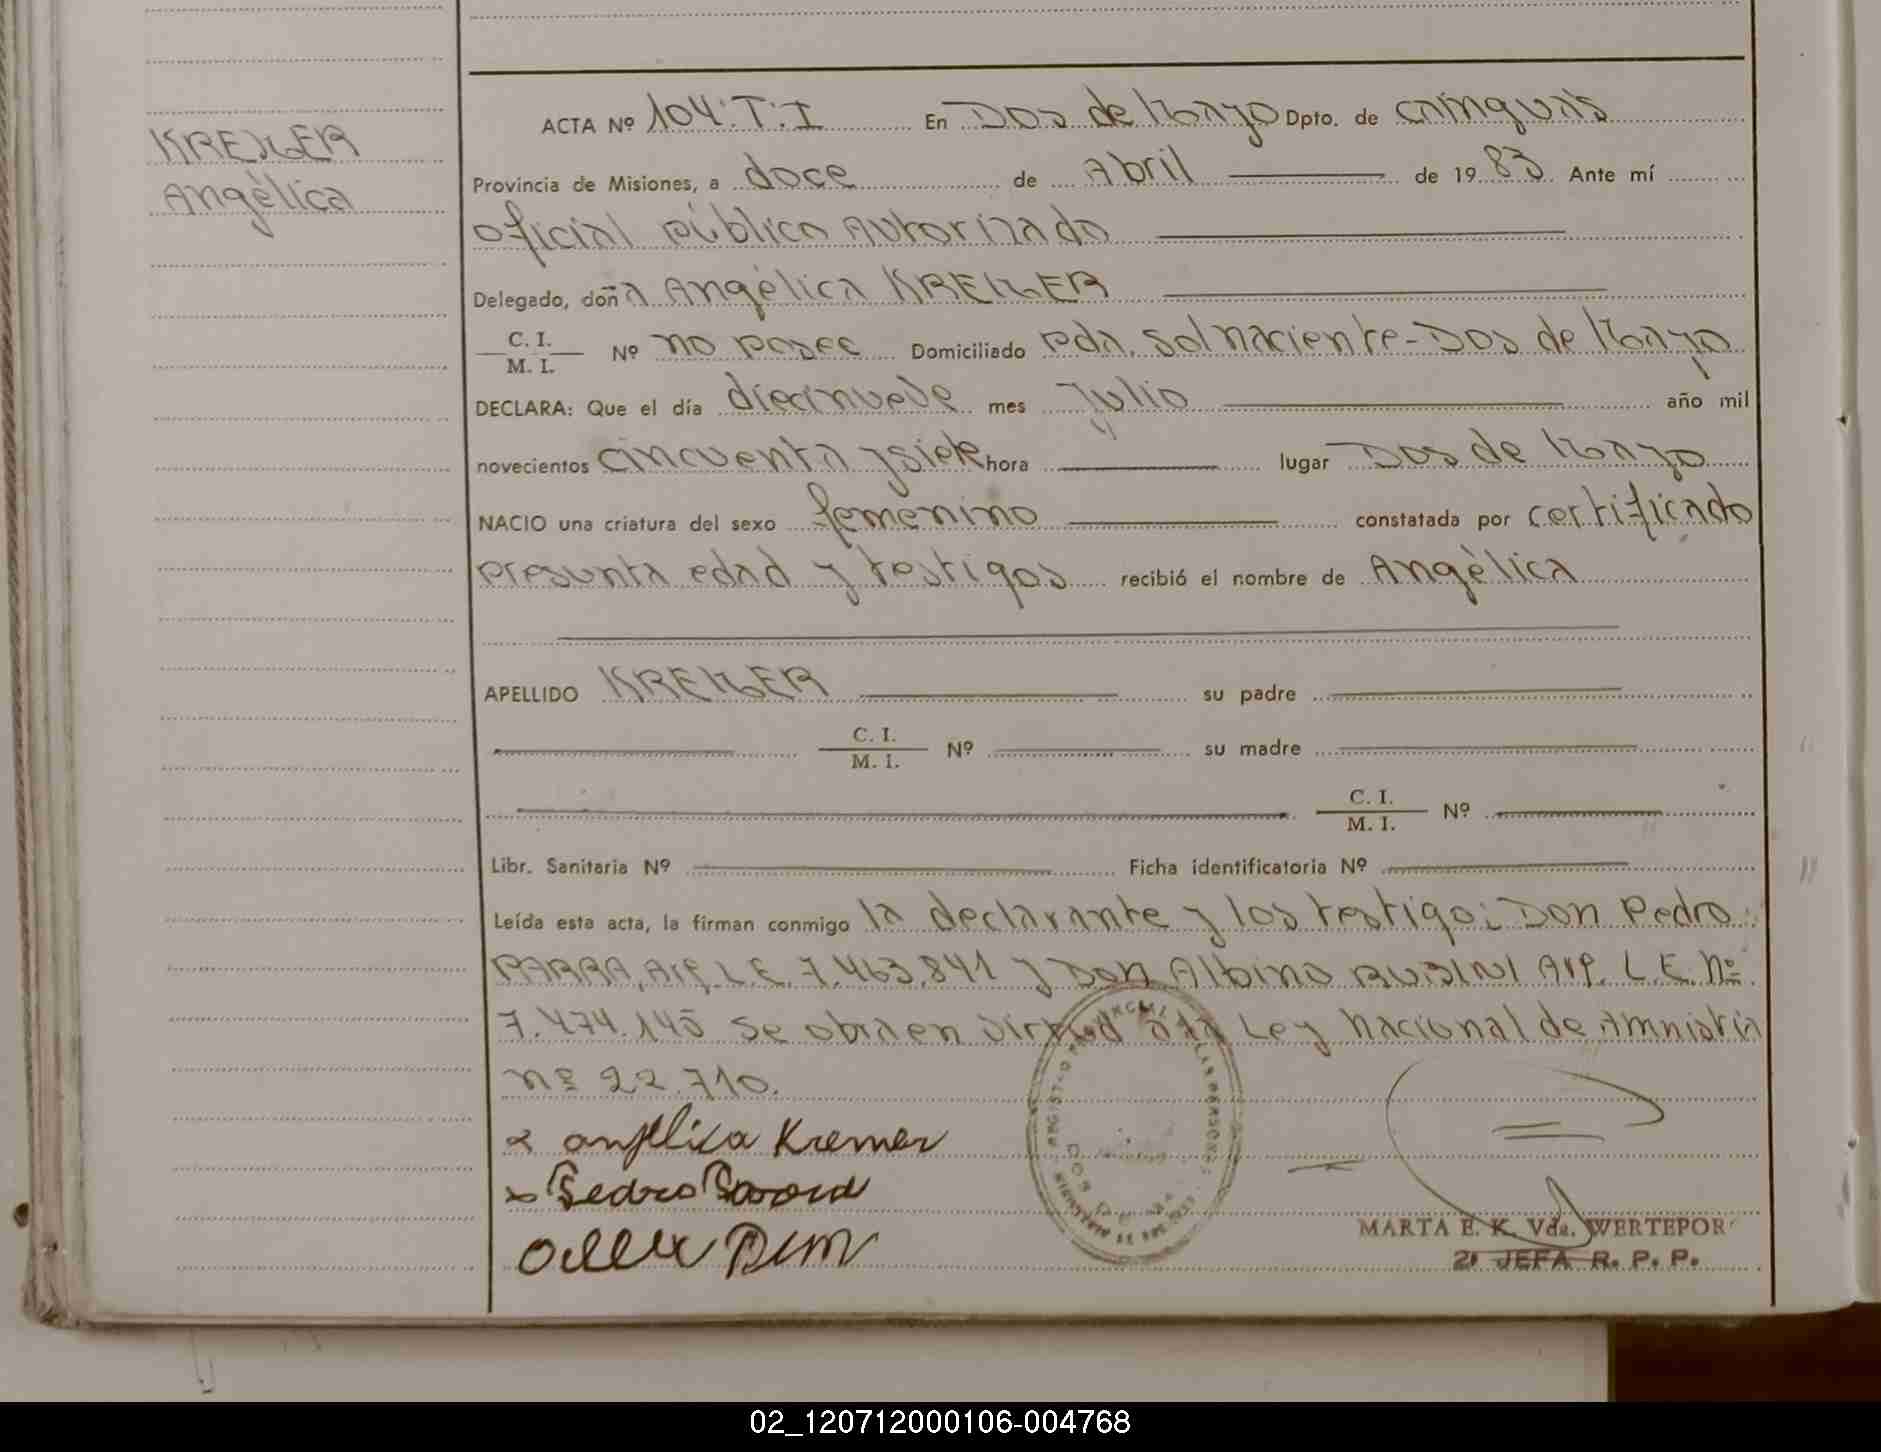 KREMER
Angèlica
ACTA Nº 104:T:I En Dos de Mayo Dpto. de cainguas
Provincia de Misiones, a doce de Abril de 1983 Ante mí
oficial público Autorizado
Delegado, doña Angèlica KREMER
C. I.
M. I.
Nº no posee Domiciliado Pda. Sol naciente-Dos de Mayo
DECLARA: Que el día diecinueve mes Julio año mil
novecientos cincuenta y siete hora lugar Dos de Mayo
NACIO una criatura del sexo femenino constatada por certificado
presunta edad y testigos recibió el nombre de Angèlica
APELLIDO KREMER su padre
C. I.
M. I.
Nº su madre
C. I.
M. I.
Nº
Libr. Sanitaria Nº Ficha identificatoria Nº
Leída esta acta, la firman conmigo la declarante y los testigo: Don Pedro
PARRA, Arg. L.E. 7.463.841 y Don Albino Arg. L.E. Nº
7.474.145 se obra en virtud a la Ley Nacional de Amnistia
nº 22.710.
angelica Kremer
Pedro
DOS DE
MARTA E. K. Vda. WERTEPOR
2ª JEFA R. P. P.
02_120712000106-004768